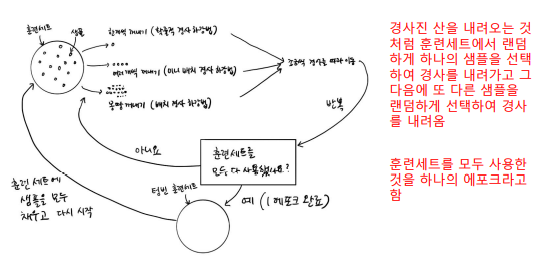 훈련세트
샘플
한개씩 꺼내기 (확률적 경사 하강법)
여러개씩 꺼내기 (미니 배치 경사 하강법)
몽땅 꺼내기 (배치 경사 하강법)
조금씩 경사를 따라 이동
반복
아니요
훈련세트를
모두 다 사용했나요?
예 (1 에포크 완료)
텅빈 훈련세트
훈련 세트에
샘플을 모두
채우고 다시 시작
경사진 산을 내려오는 것
처럼 훈련세트에서 랜덤
하게 하나의 샘플을 선택
하여 경사를 내려가고 그
다음에 또 다른 샘플을
랜덤하게 선택하여 경사
를 내려옴
훈련세트를 모두 사용한
것을 하나의 에포크라고
함